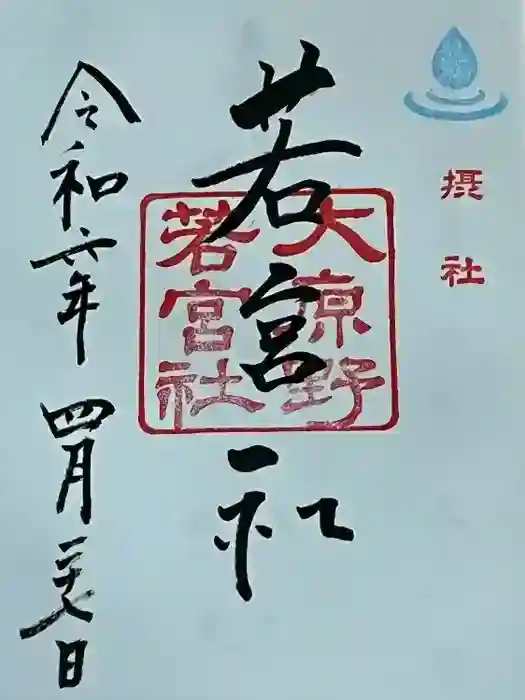 摂社
若宮社
大原野
若宮社
令和六年 四月二十八日